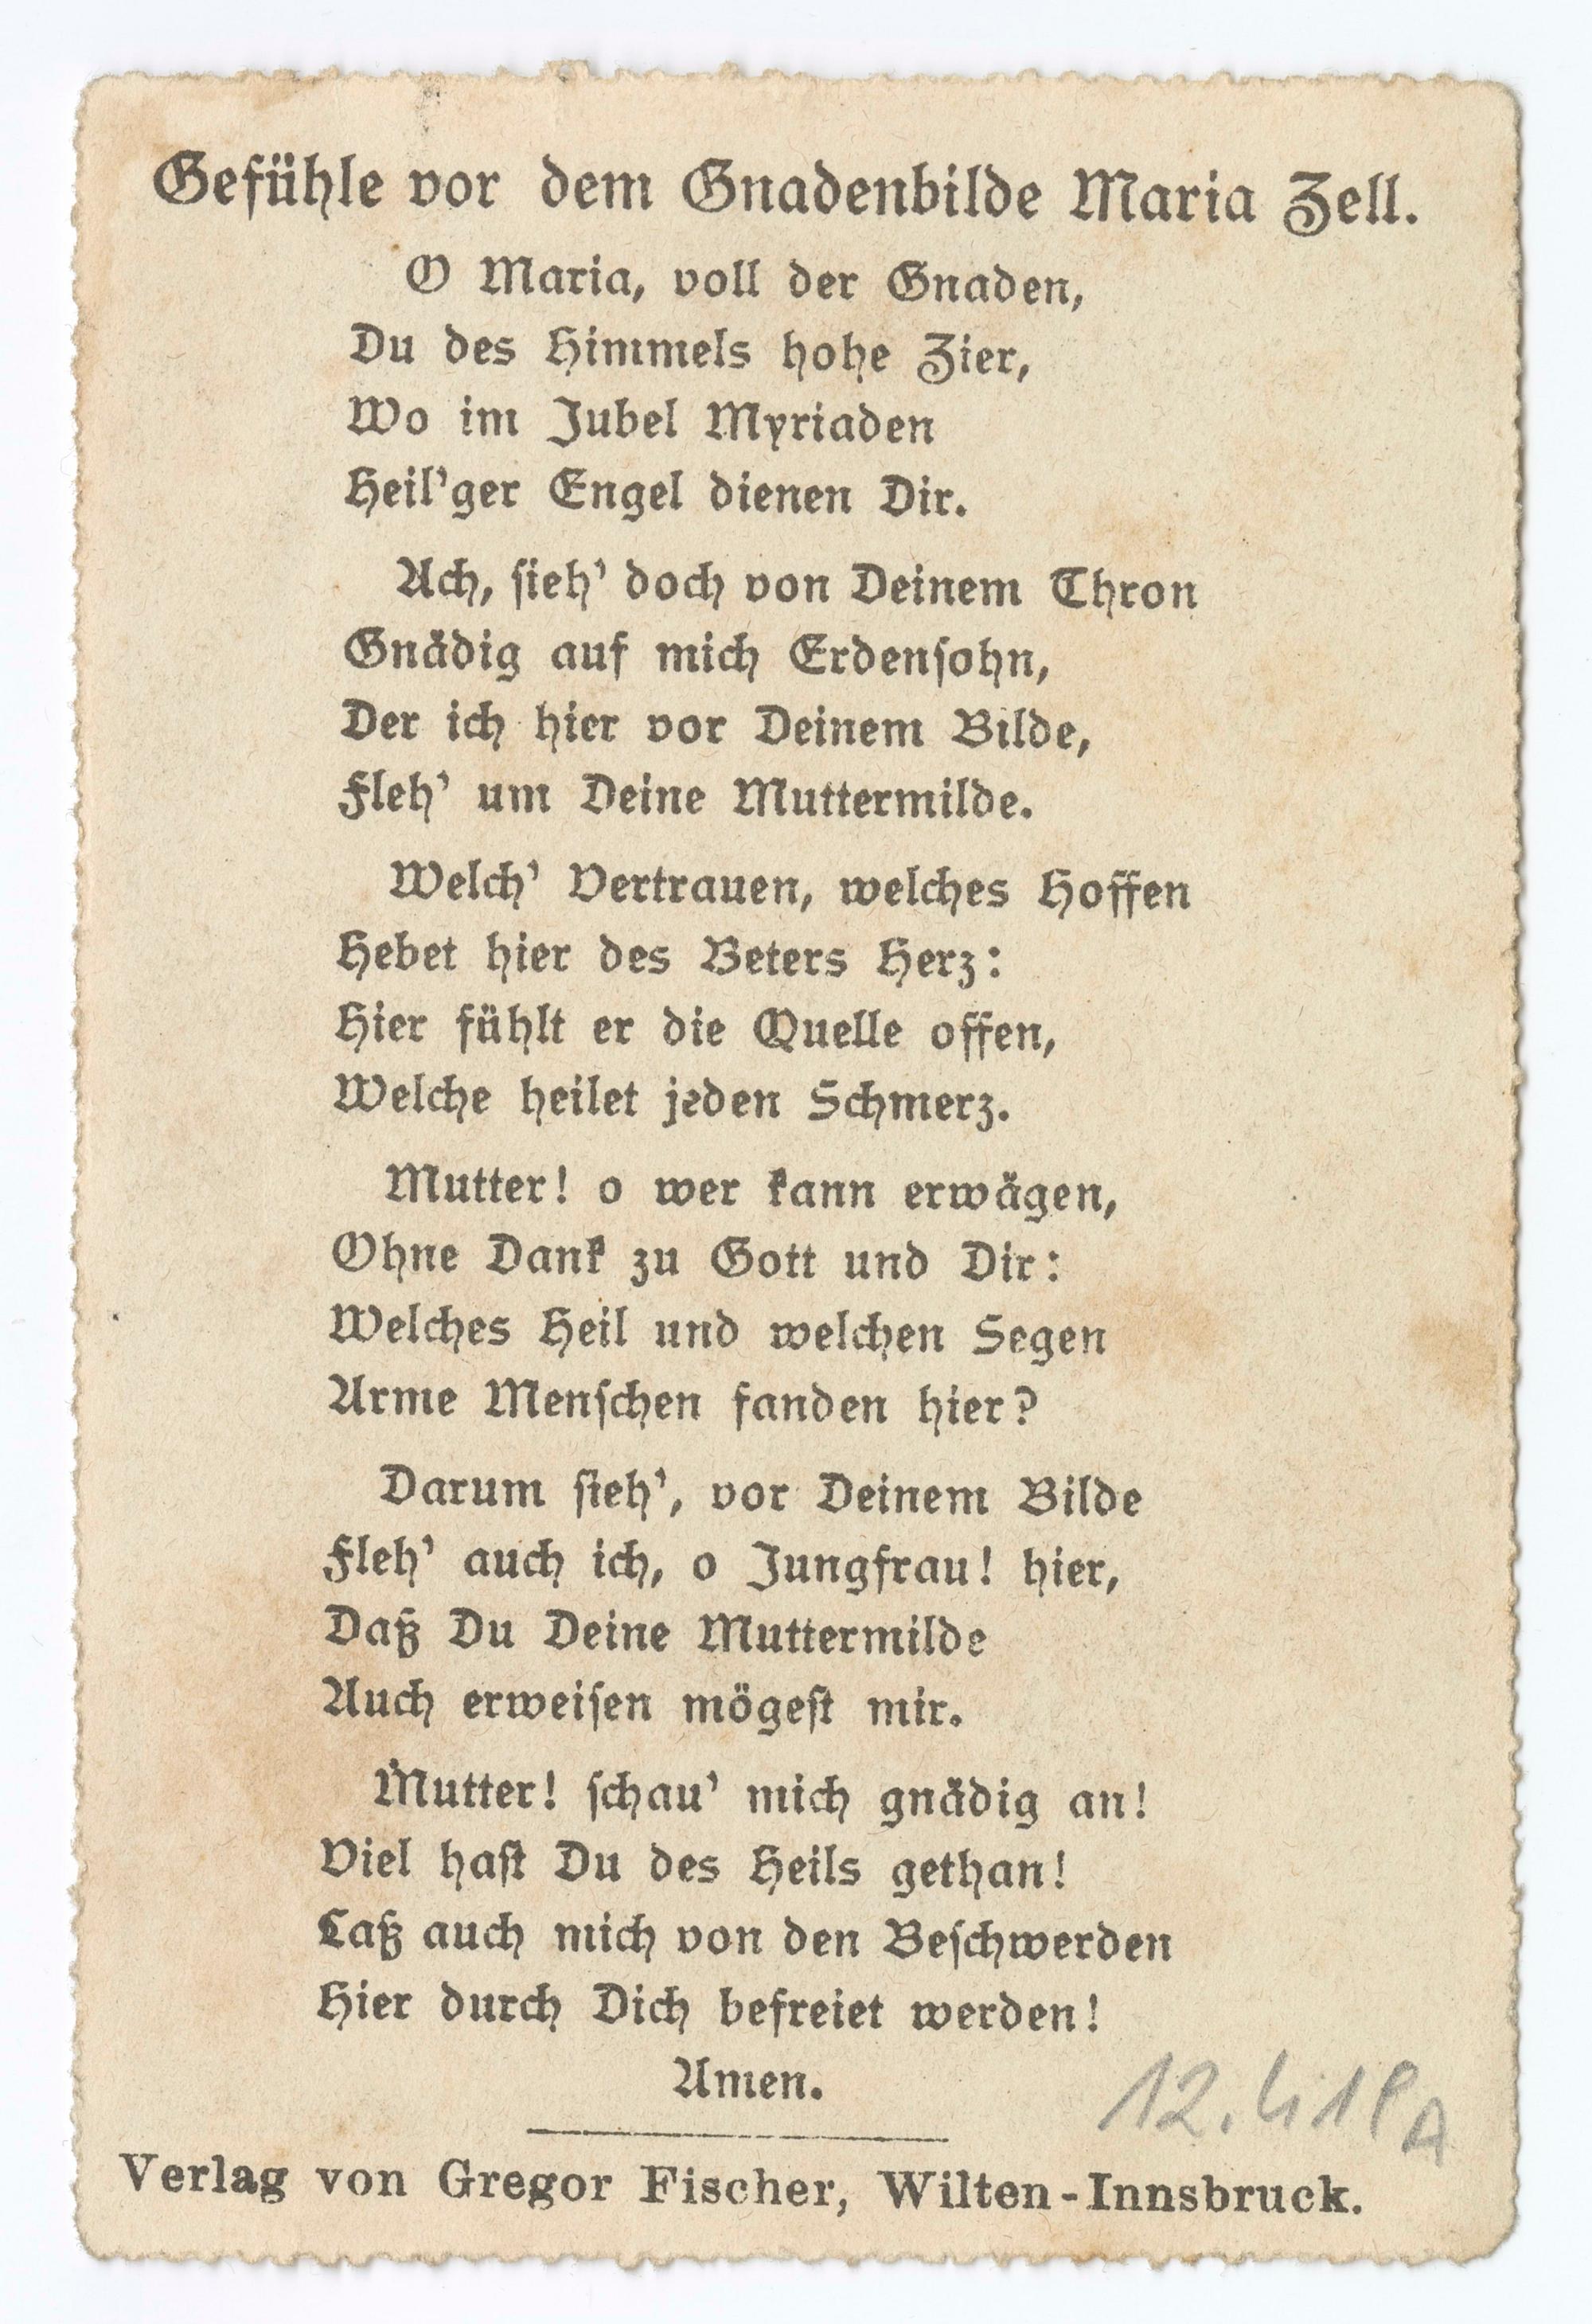 Gefühle vor dem Gnadenbilde Maria Zell.
O Maria, voll der Gnaden,
Du des Himmels hohe Zier,
Wo im Jubel Myriaden
Heil'ger Engel dienen Dir.
Ach, sieh' doch von Deinem Thron
Gnädig auf mich Erdensohn,
Der ich hier vor Deinem Bilde,
Fleh' um Deine Muttermilde.
Welch' Vertrauen, welches Hoffen
Hebet hier des Beters Herz:
Hier fühlt er die Quelle offen,
Welche heilet jeden Schmerz.
Mutter! o wer kann erwägen,
Ohne Dank zu Gott und Dir:
Welches Heil und welchen Segen
Arme Menschen fanden hier?
Darum sieh', vor Deinem Bilde
Fleh' auch ich, o Jungfrau! hier,
Daß Du Deine Muttermilde
Auch erweisen mögest mir.
Mutter! schau' mich gnädig an!
Viel hast Du des Heils gethan!
Laß auch mich von den Beschwerden
Hier durch Dich befreiet werden!
Amen.
Verlag von Gregor Fischer, Wilten-Innsbruck.